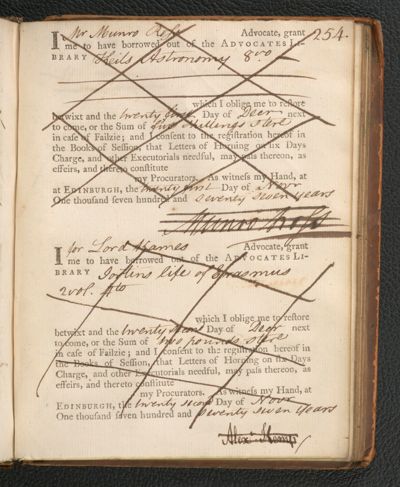 254.
I Mr Munro Ross Advocate, grant
me to have borrowed out of the ADVOCATES LI-
BRARY Keils Astronomy 8vo
which I oblige me to restore
betwixt and the twenty first Day of Decr next
to come, or the Sum of five shillings sters
in case of Failzie; and I consent to the registration hereof in
the Books of Session, that Letters of Horning on six Days
Charge, and other Executorials needful, may pass thereon, as
effeirs, and thereto constitute
my Procurators. As witness my Hand, at
at EDINBURGH, the twenty first Day of Novr
One thousand seven hundred and seventy seven years
Munro Ross
I for Lord Hames Advocate, grant
me to have borrowed out of the ADVOCATES LI-
BRARY Jortins life of Erasmus
2 vol. 4to
which I oblige me to restore
betwixt and the twenty second Day of Decr next
to come, or the Sum of two pounds sters
in case of Failzie; and I consent to the registration hereof in
the Books of Session, that Letters of Horning on six Days
Charge, and other Executorials needful, may pass thereon, as
effeirs, and thereto constitute
my Procurators. As witness my Hand, at
EDINBURGH, the twenty second Day of Novr
One thousand seven hundred and seventy seven years
Alexr